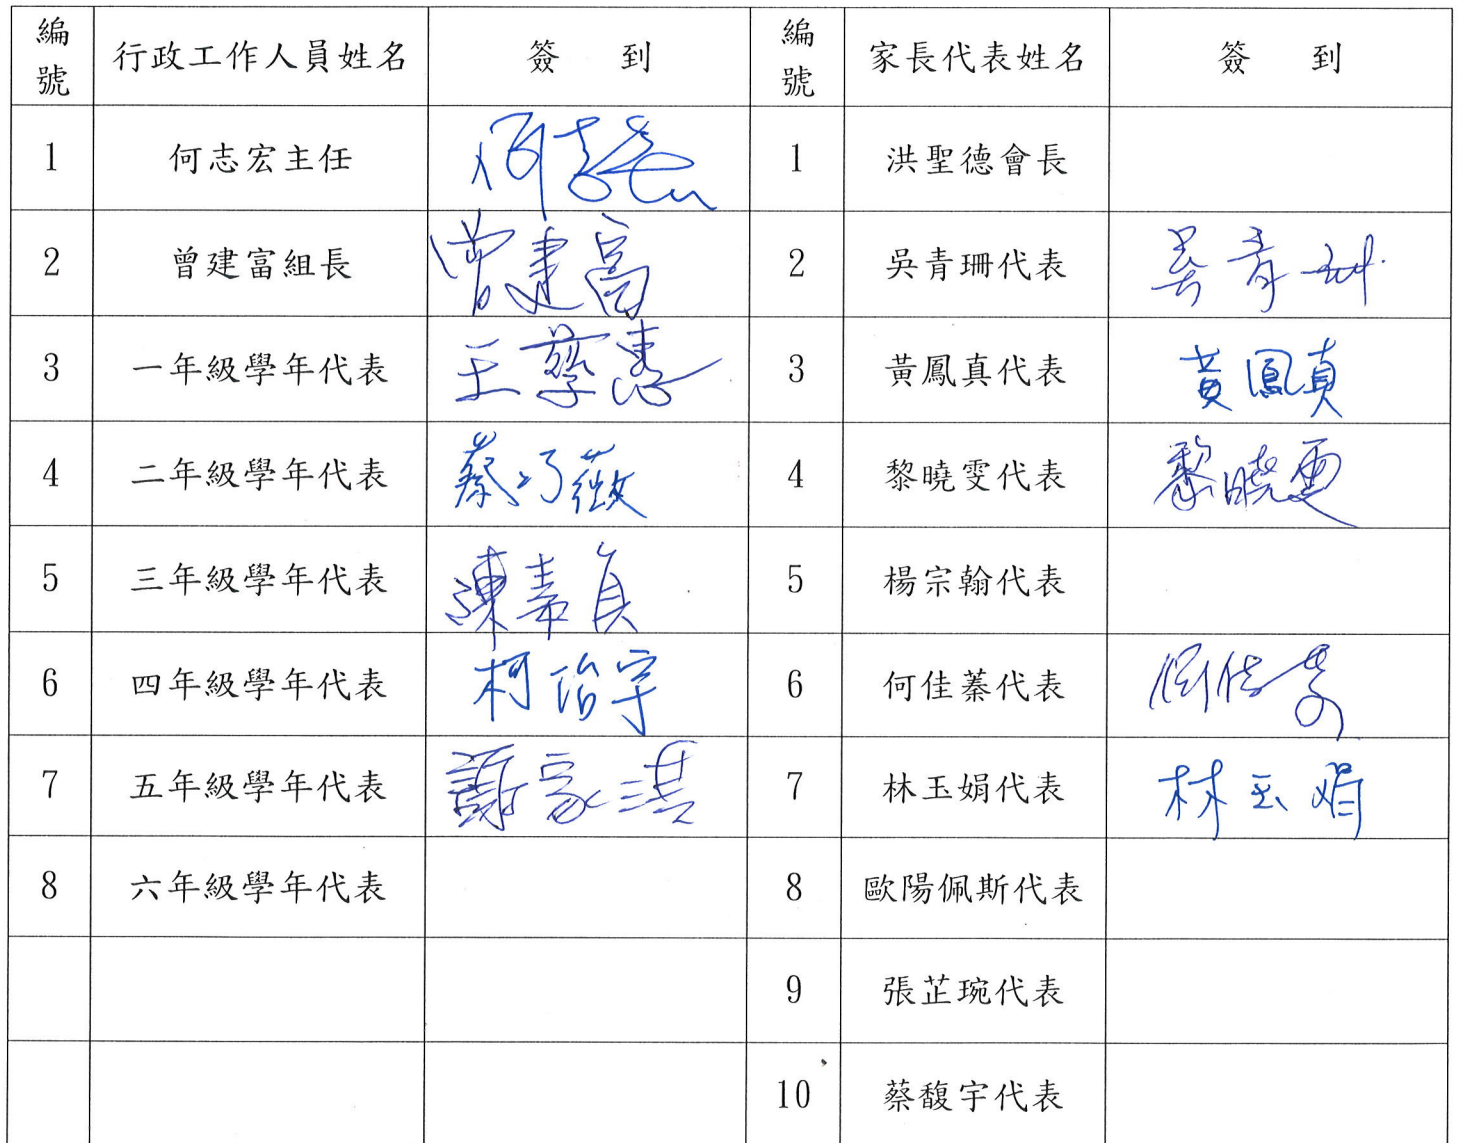 編號 行政工作人員姓名 簽 到 編號 家長代表姓名 簽 到
1 何志宏主任 何志宏 1 洪聖德會長
2 曾建富組長 曾建富 2 吳青珊代表 吳青珊
3 一年級學年代表 王 3 黃鳳真代表 黃鳳真
4 二年級學年代表 蔡巧薇 4 黎曉雯代表 黎曉雯
5 三年級學年代表 陳素貞 5 楊宗翰代表
6 四年級學年代表 柯怡宇 6 何佳蓁代表 何佳蓁
7 五年級學年代表 謝家淇 7 林玉娟代表 林玉娟
8 六年級學年代表 8 歐陽佩斯代表
9 張芷琬代表
10 蔡馥宇代表